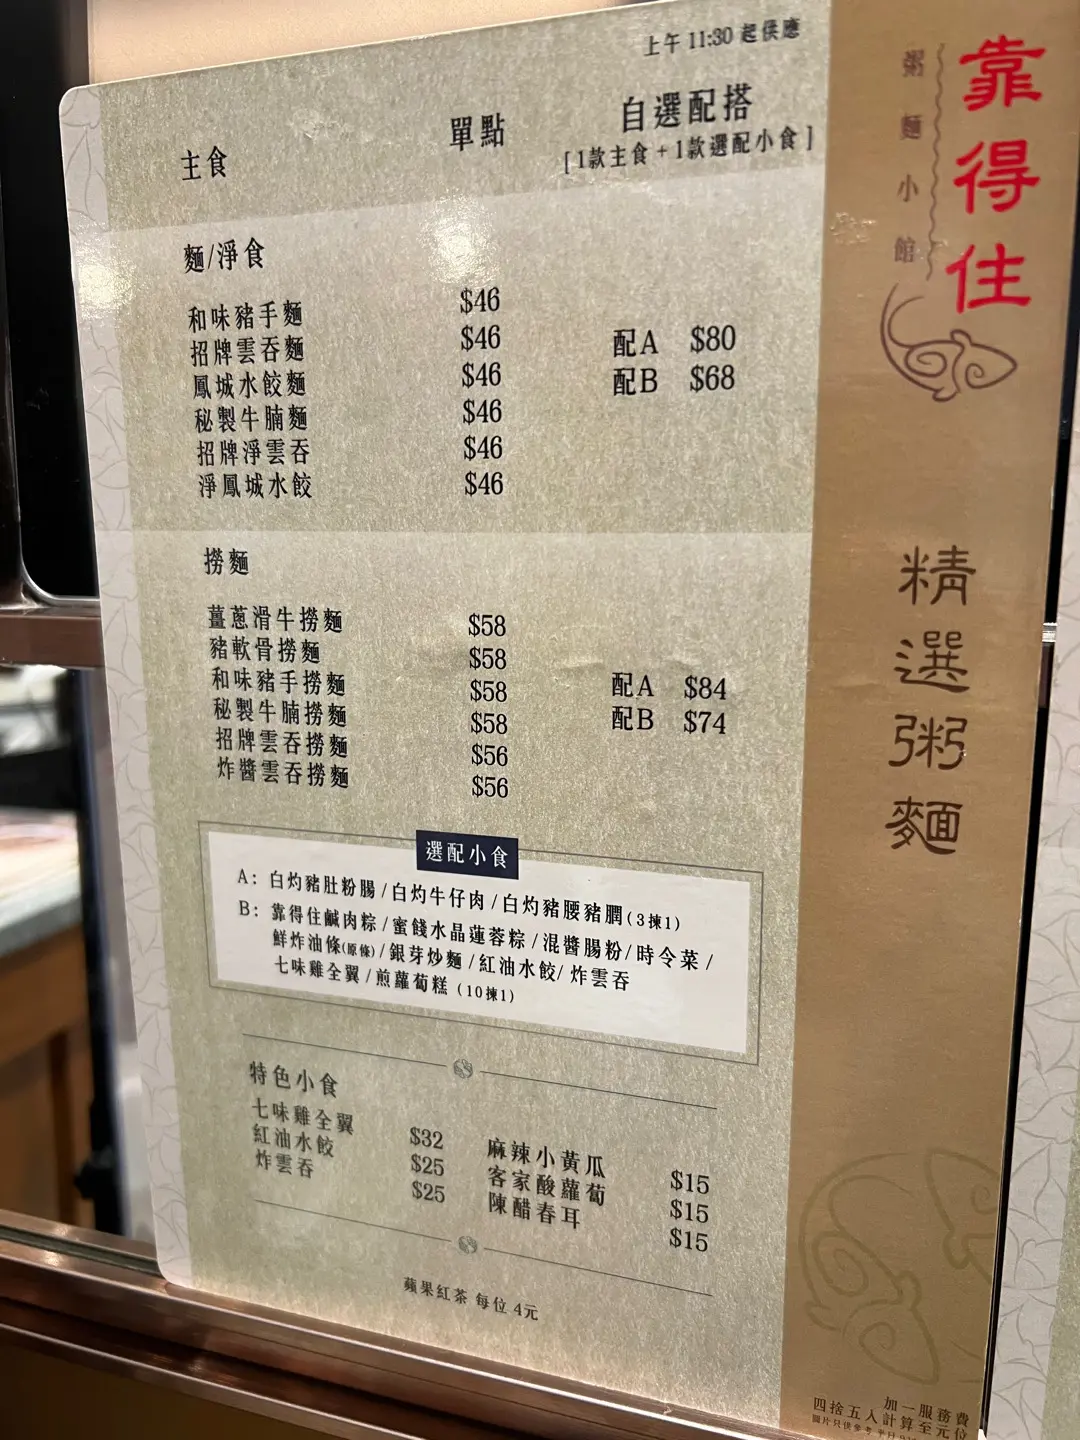 上午 11:30 起供應
主食 單點 自選配搭
[ 1款主食 + 1款選配小食 ]
麵/淨食
和味豬手麵 $46
招牌雲吞麵 $46
鳳城水餃麵 $46
秘製牛腩麵 $46
招牌淨雲吞 $46
淨鳳城水餃 $46
配A $80
配B $68
撈麵
薑蔥滑牛撈麵 $58
豬軟骨撈麵 $58
和味豬手撈麵 $58
秘製牛腩撈麵 $58
招牌雲吞撈麵 $56
炸醬雲吞撈麵 $56
配A $84
配B $74
選配小食
A: 白灼豬肚粉腸/白灼牛仔肉/白灼豬腰豬膶(3揀1)
B: 靠得住鹹肉粽/蜜餞水晶蓮蓉粽/混醬腸粉/時令菜/
鮮炸油條(原條)/銀芽炒麵/紅油水餃/炸雲吞
七味雞全翼/煎蘿蔔糕 (10揀1)
特色小食
七味雞全翼 $32
紅油水餃 $25
炸雲吞 $25
麻辣小黃瓜 $15
客家酸蘿蔔 $15
陳醋春耳 $15
蘋果紅茶 每位 4元
靠得住
粥麵小館
精選粥麵
加一服務費
四捨五入計算至元位
圖片只供參考